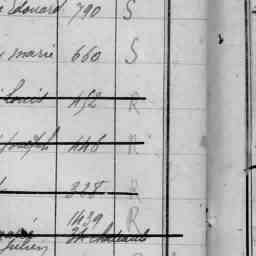 Edouard 790 S
marie 660 S
Louis 452 R
Joseph 446 R
328 R
1439 R
Julien